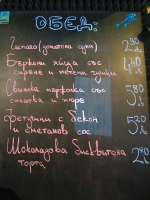 ОБЕД:
Гаспачо (доматена супа) 2.90
Бъркани яйца със 4.40
сирене и печени чушки
Свинска пържола със 5.80
салата и
Фетучини с бекон 5.20
и сметанов сос
Шоколадова бисквитена 2.80
торта